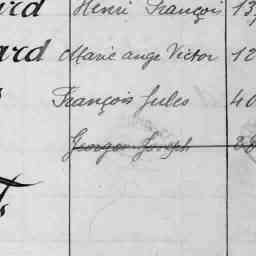 ard Henri François 13
ard Marie ange Victor 12
François Jules 40
Georges Joseph 28
ts